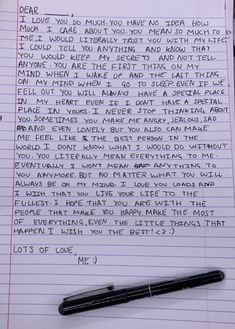 DEAR
I LOVE YOU SO MUCH. YOU HAVE NO IDEA HOW
MUCH I CARE ABOUT YOU. YOU MEAN SO MUCH TO
ME. I WOULD LITERALLY TRUST YOU WITH MY LIFE.
I COULD TELL YOU ANYTHING AND KNOW THAT
YOU WOULD KEEP MY SECRETS AND NOT TELL
ANYONE. YOU ARE THE FIRST THING ON MY
MIND WHEN I WAKE UP AND THE LAST THING
ON MY MIND WHEN I GO TO SLEEP. EVEN IF WE
FELL OUT YOU WILL ALWAYS HAVE A SPECIAL PLACE
IN MY HEART EVEN IF I DONT HAVE A SPECIAL
PLACE IN YOURS. I NEVER STOP THINKING ABOUT
YOU. SOMETIMES YOU MAKE ME ANGRY, JEALOUS, SAD
AND EVEN LONELY BUT YOU ALSO CAN MAKE
ME FEEL LIKE THE BEST PERSON IN THE
WORLD. I DONT KNOW WHAT I WOULD DO WITHOUT
YOU. YOU LITERALLY MEAN EVERYTHING TO ME.
EVENTUALLY I WONT MEAN ANYTHING TO
YOU ANYMORE. BUT NO MATTER WHAT YOU WILL
ALWAYS BE ON MY MIND. I LOVE YOU LOADS AND
I WISH THAT YOU LIVE YOUR LIFE TO THE
FULLEST. I HOPE THAT YOU ARE WITH THE
PEOPLE THAT MAKE YOU HAPPY. MAKE THE MOST
OF EVERYTHING, EVEN THE LITTLE THINGS THAT
HAPPEN. I WISH YOU THE BEST! <3 :)
LOTS OF LOVE,
ME :)